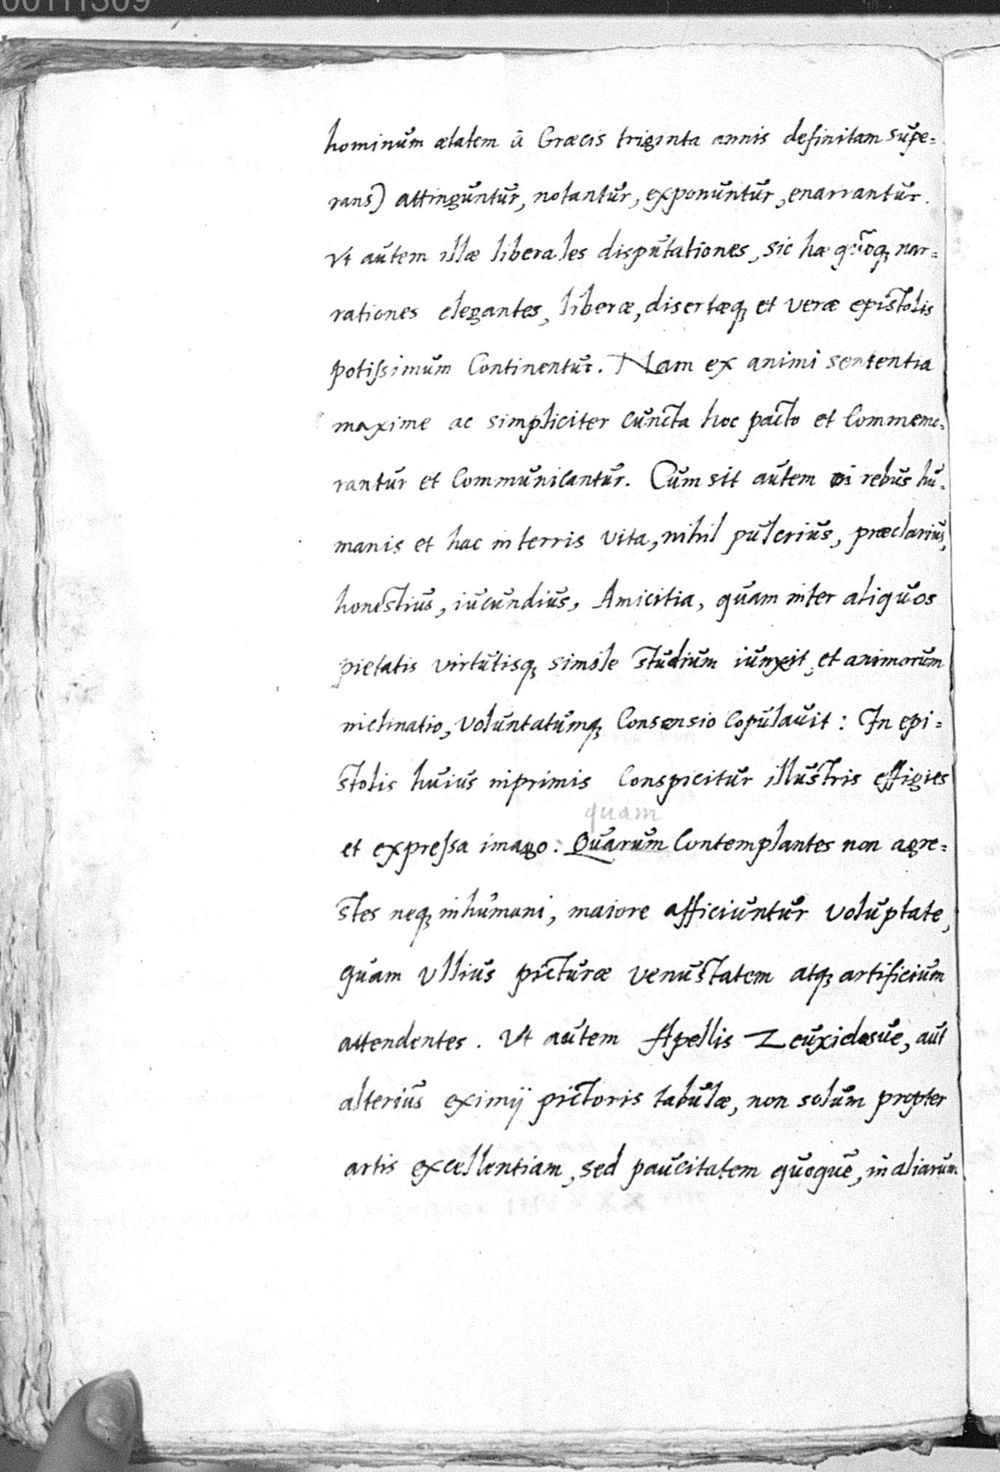 00111309
hominum ætatem à Græcis triginta annis definitam supe=
rans) attinguntur, notantur, exponuntur, enarrantur.
Vt autem illæ liberales disputationes, sic hæ quoq; nar=
rationes elegantes, liberæ, disertæq; et veræ epistolis
potissimum Continentur. Nam ex animi sententia
maxime ac simpliciter cuncta hoc pacto et Commemo=
rantur et Communicantur. Cum sit autem in rebus hu=
manis et hac in terris vita, nihil pulcrius, præclarius,
honestius, iucundius, Amicitia, quam inter aliquos
pietatis virtutisq; simile studium iunxit, et animorum
inclinatio, voluntatumq; Consensio Copulauit: In epi=
stolis huius inprimis Conspicitur illustris effigies
quam
et expressa imago: Quarum Contemplantes non agre=
stes neq; inhumani, maiore afficiuntur voluptate,
quam vllius picturæ venustatem atq; artificium
attendentes. Vt autem Apellis Zeuxidosue, aut
alterius eximij pictoris tabulæ, non solum propter
artis excellentiam, sed paucitatem quoque, in aliarum